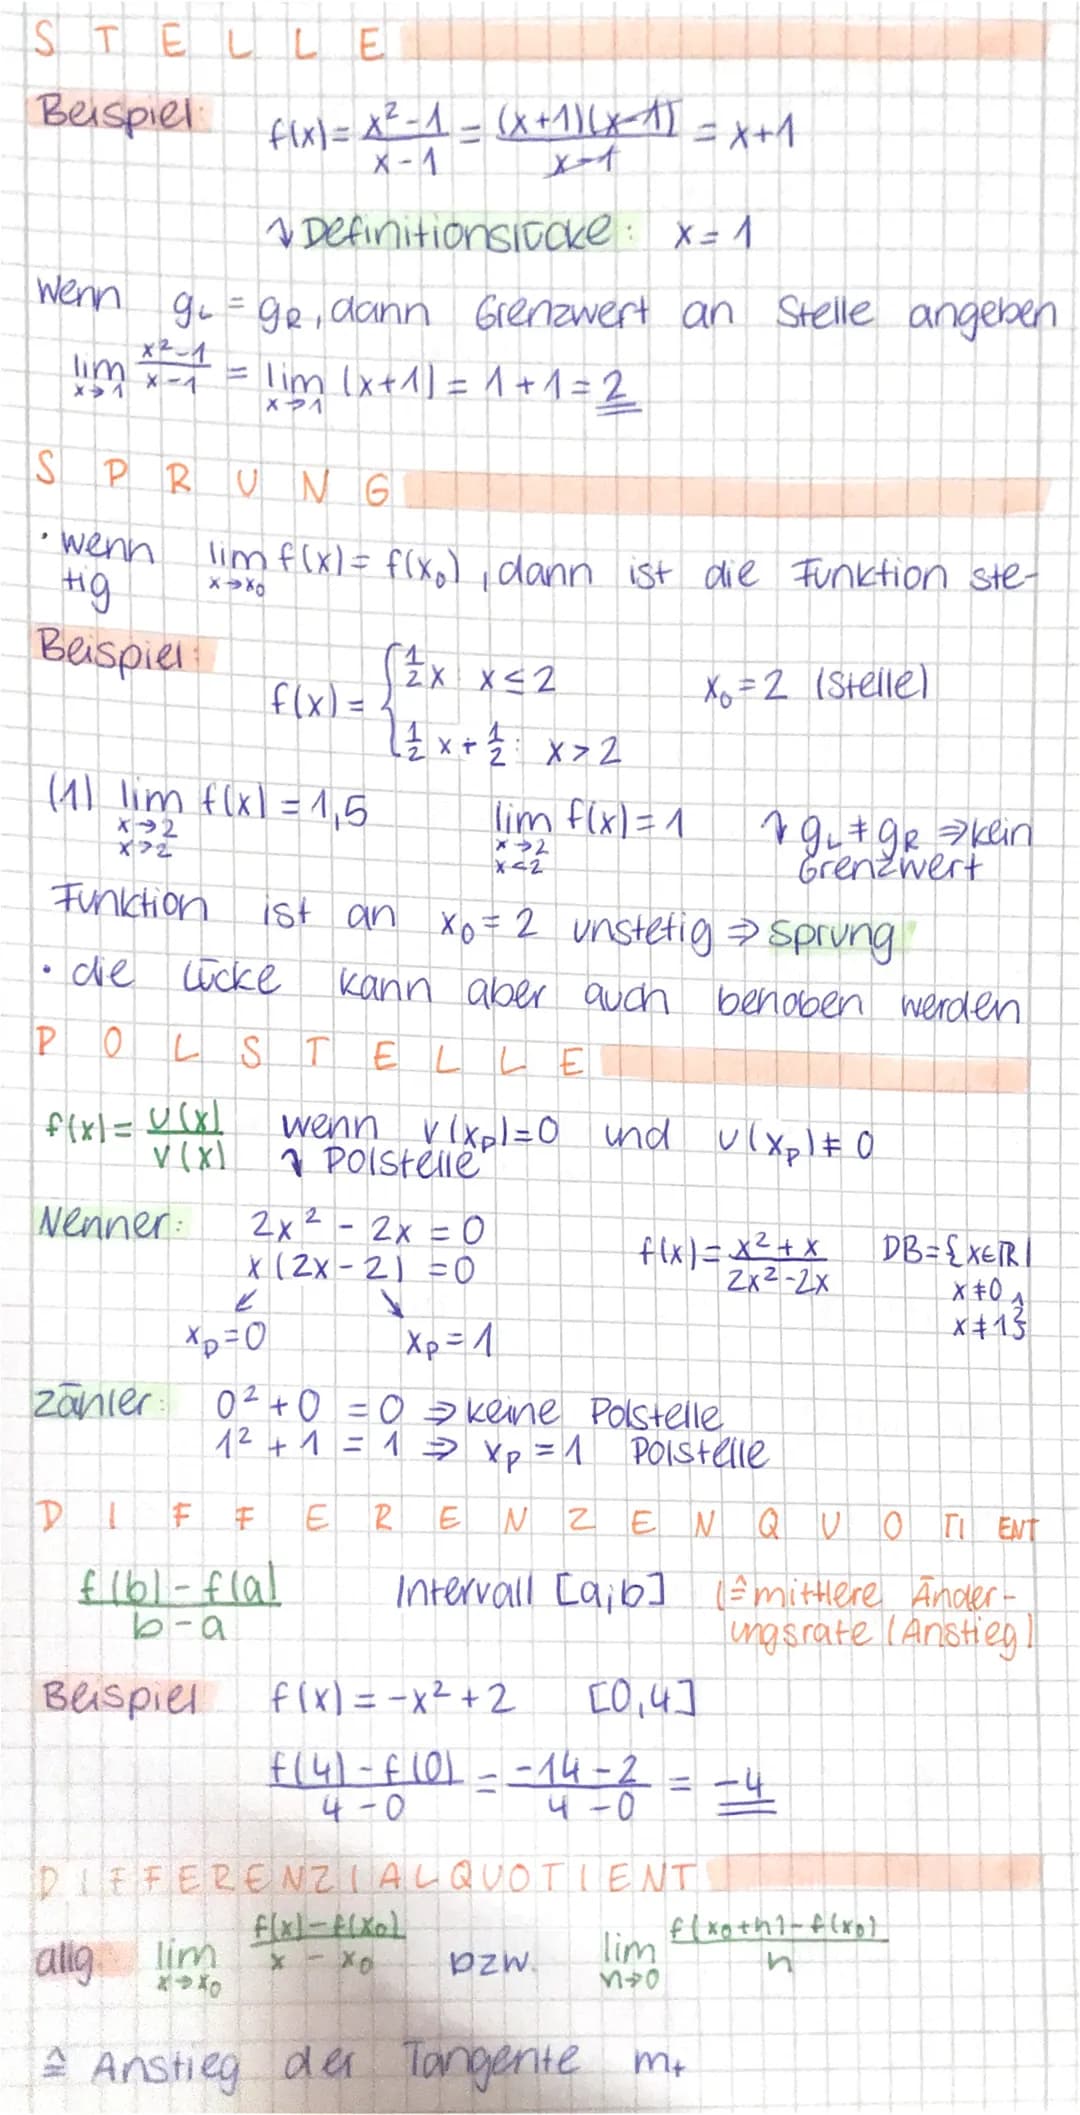 STELLE
Beispiel: f(x) = x²-1 / x-1 = (x+1)(x-1) / x-1 = x+1
↴ Definitionslücke: x = 1
wenn gL = gR, dann Grenzwert an Stelle angeben
lim x→1 x²-1 / x-1 = lim x→1 (x+1) = 1+1 = 2
SPRUNG
• wenn lim x→x₀ f(x) = f(x₀), dann ist die Funktion ste-
tig
Beispiel: f(x) = { 1/2 x x ≤ 2 x₀ = 2 (Stelle)
1/2 x + 1/2 : x > 2
(1) lim x→2 x>2 f(x) = 1,5 lim x→2 x<2 f(x) = 1 ↴ gL ≠ gR ⇒ kein
Grenzwert
Funktion ist an x₀ = 2 unstetig ⇒ Sprung
• die Lücke kann aber auch behoben werden
POLSTELLE
f(x) = u(x) / v(x) wenn v(xp) = 0 und u(xp) ≠ 0
↴ Polstelle
Nenner: 2x² - 2x = 0
x(2x-2) = 0 f(x) = x²+x / 2x²-2x DB = {x∈ℝ|
x≠0 ∧
xp = 0 xp = 1 x≠1}
Zähler: 0² + 0 = 0 ⇒ keine Polstelle
1² + 1 = 1 ⇒ xp = 1 Polstelle
DIFFERENZENQUOTIENT
f(b) - f(a) / b - a Intervall [a;b] (≙ mittlere Änder-
ungsrate (Anstieg)
Beispiel f(x) = -x² + 2 [0,4]
f(4) - f(0) / 4 - 0 = -14 - 2 / 4 - 0 = -4
DIFFERENZIALQUOTIENT
allg. lim x→x₀ f(x) - f(x₀) / x - x₀ bzw. lim h→0 f(x₀+h) - f(x₀) / h
≙ Anstieg der Tangente mt